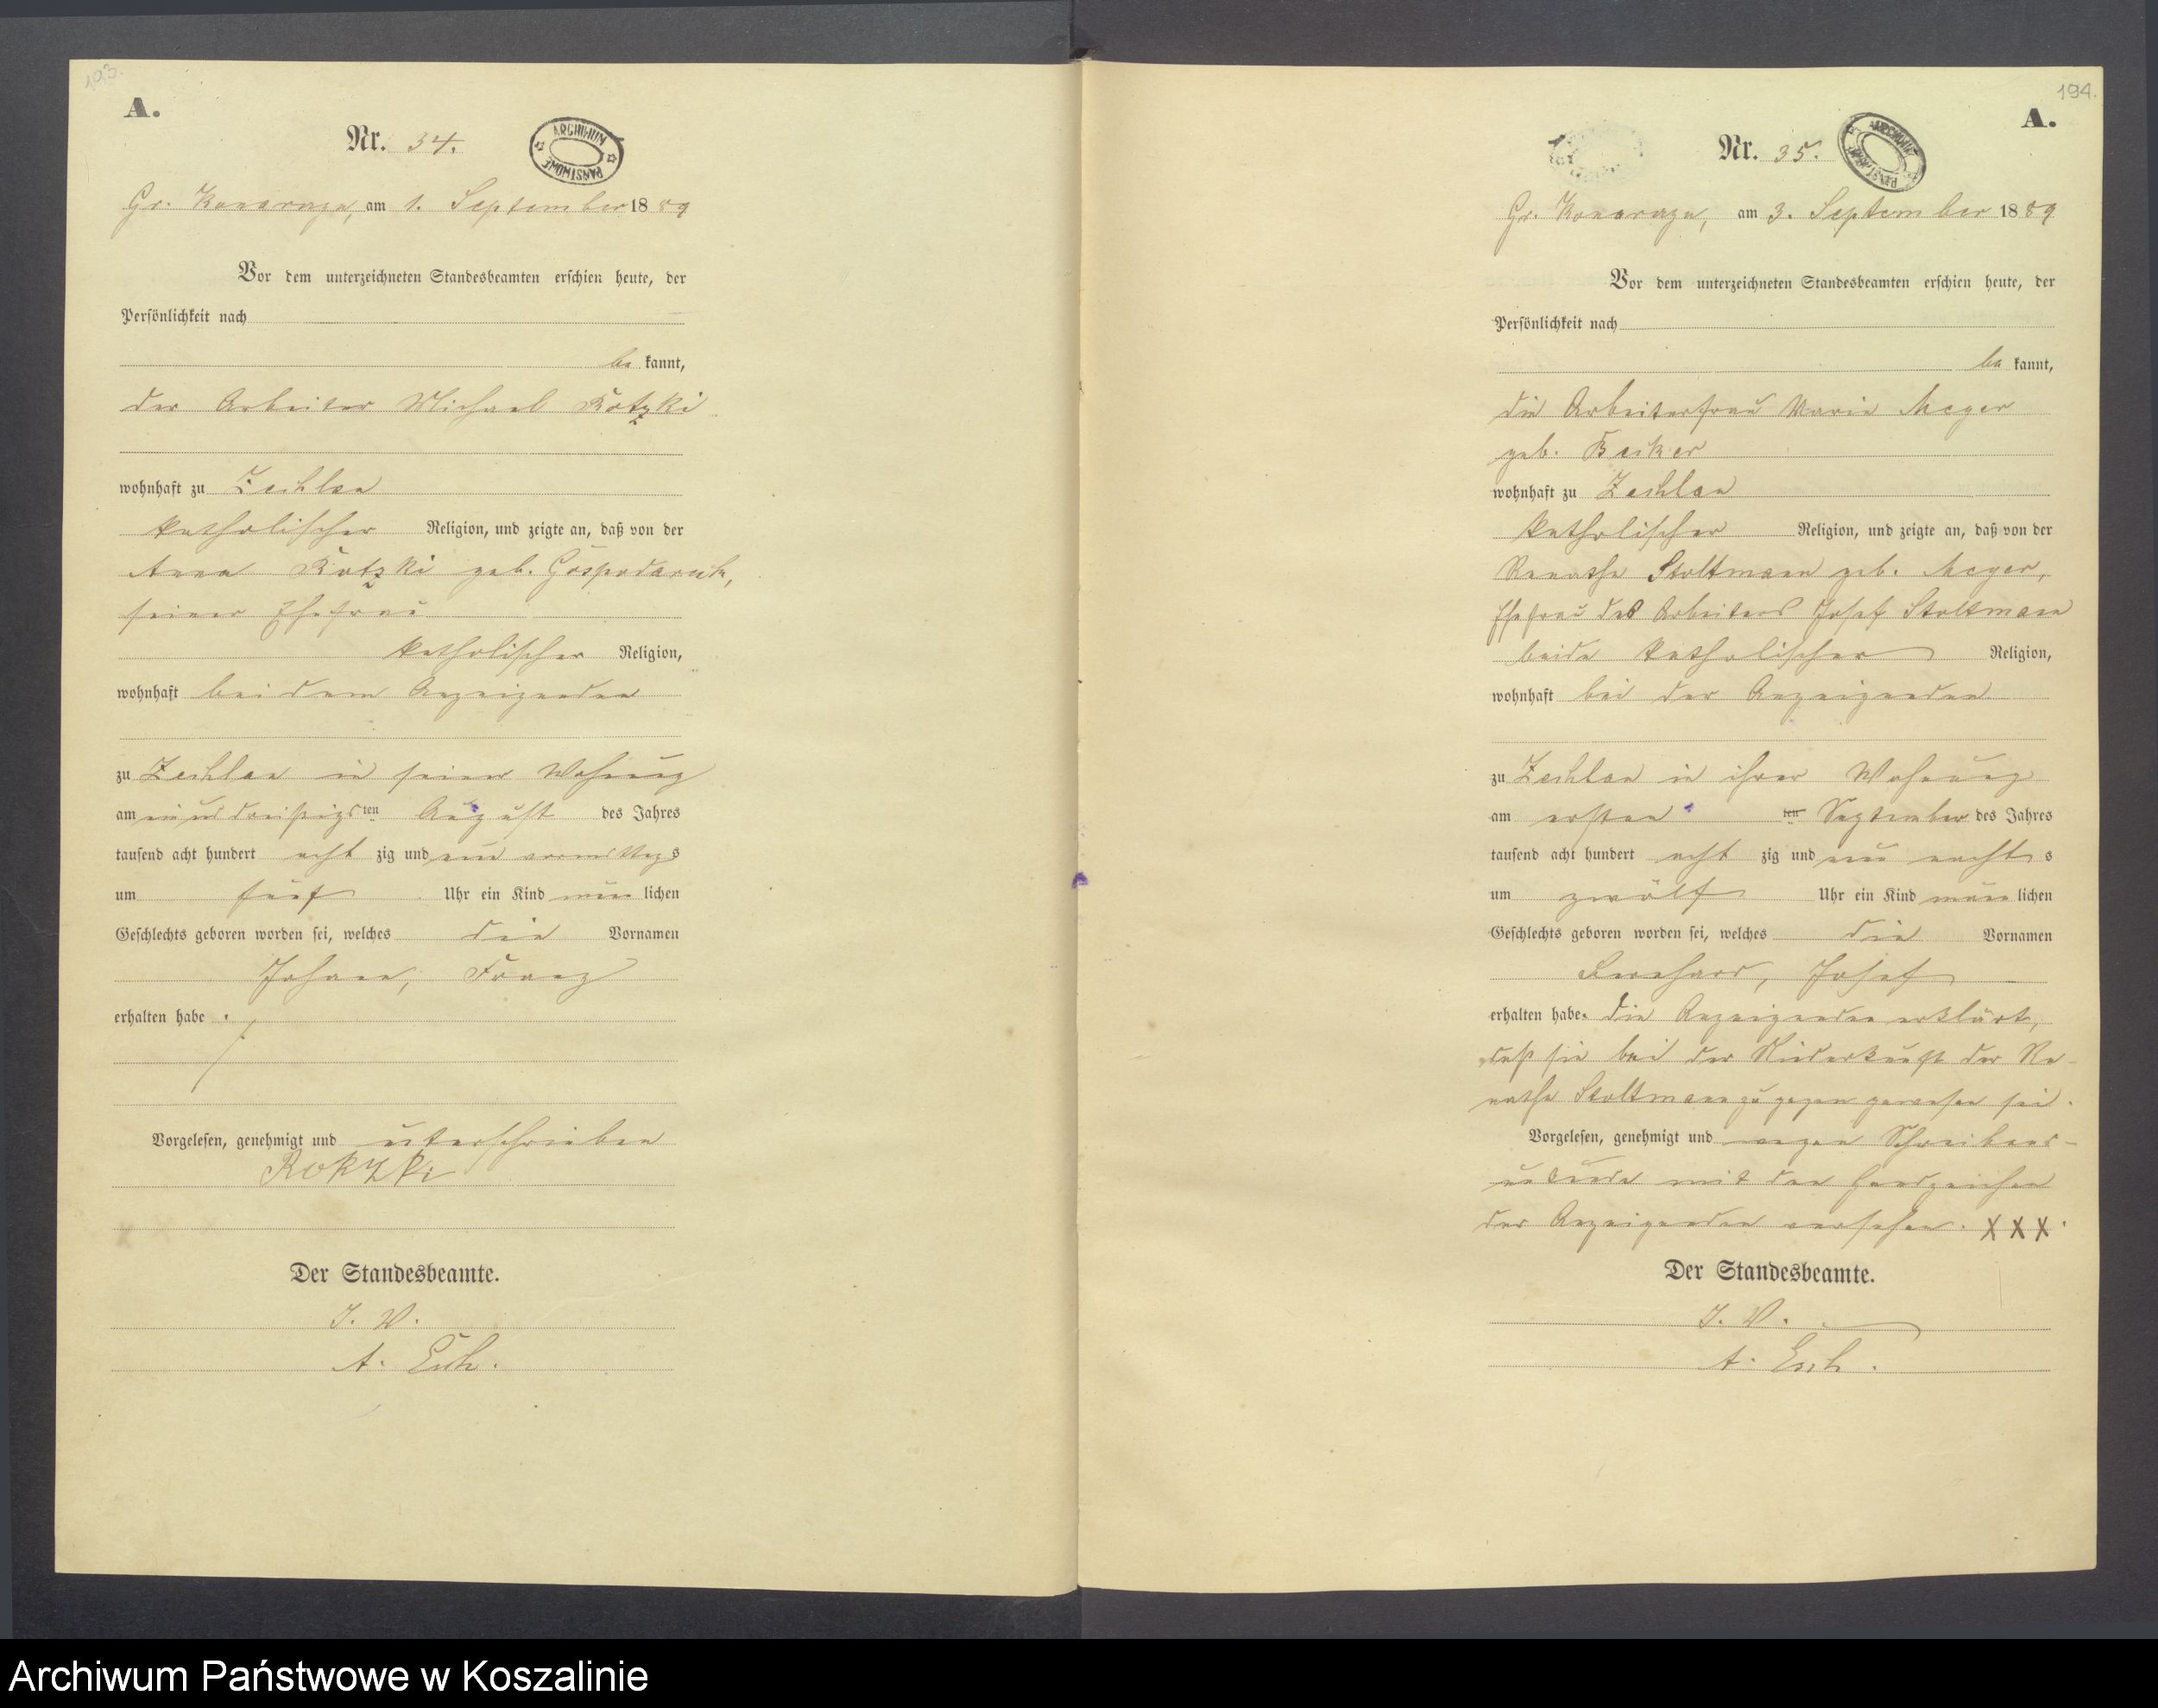 193.
A.
Nr. 34.
ARCHIWUM PAŃSTWOWE
Gr. Konarczyn, am 1. September 1889
Vor dem unterzeichneten Standesbeamten erschien heute, der
Persönlichkeit nach
be kannt,
der Arbeiter Michael
wohnhaft zu Zechlau
katholischer Religion, und zeigte an, daß von der
Anna geb.
seiner Ehefrau
katholischer Religion,
wohnhaft bei dem Anzeigenden
zu Zechlau in seiner Wohnung
am einunddreißigsten August des Jahres
tausend acht hundert acht zig und neun vormittags
um fünf Uhr ein Kind männ lichen
Geschlechts geboren worden sei, welches die Vornamen
Johann, Franz
erhalten habe.
Vorgelesen, genehmigt und unterschrieben
Der Standesbeamte.
J. V.
A. Esch.
194.
A.
Nr. 35.
ARCHIWUM PAŃSTWOWE
Gr. Konarczyn, am 3. September 1889
Vor dem unterzeichneten Standesbeamten erschien heute, der
Persönlichkeit nach
be kannt,
die Arbeiterfrau Marie Meyer
geb. Becker
wohnhaft zu Zechlau
katholischer Religion, und zeigte an, daß von der
Renathe Stoltmann geb. Meyer,
Ehefrau des Arbeiters Josef Stoltmann
beide katholischer Religion,
wohnhaft bei der Anzeigenden
zu Zechlau in ihrer Wohnung
am ersten ten September des Jahres
tausend acht hundert acht zig und neun nachts
um zwölf Uhr ein Kind männ lichen
Geschlechts geboren worden sei, welches die Vornamen
Bernhard, Josef
erhalten habe. Die Anzeigende erklärt,
daß sie bei der Niederkunft der Re-
nathe Stoltmann zugegen gewesen sei.
Vorgelesen, genehmigt und wegen Schreibens-
unkunde mit den Handzeichen
der Anzeigenden versehen. XXX.
Der Standesbeamte.
J. V.
A. Esch.
Archiwum Państwowe w Koszalinie